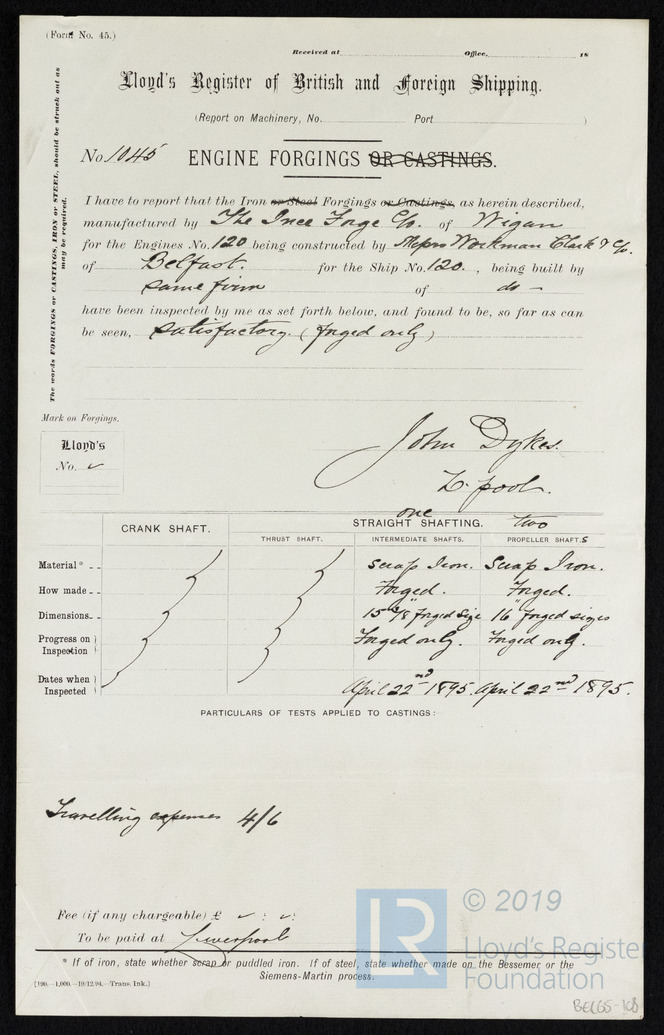 (Form No. 45.)
Received at Office, 18
Lloyd's Register of British and Foreign Shipping.
(Report on Machinery, No. Port )
No. 1045 ENGINE FORGINGS OR CASTINGS.
The words FORGINGS or CASTINGS, IRON or STEEL, should be struck out as
may be required.
I have to report that the Iron or Steel Forgings or Castings, as herein described,
manufactured by The Ince Forge Co. of Wigan
for the Engines No. 120 being constructed by Messrs Workman Clark & Co.
of Belfast. for the Ship No. 120. , being built by
same firm of do -
have been inspected by me as set forth below, and found to be, so far as can
be seen, satisfactory. (forged only)
Mark on Forgings.
Lloyd's
No. ✓
John Dykes.
L'pool.
one two
CRANK SHAFT. STRAIGHT SHAFTING.
THRUST SHAFT. INTERMEDIATE SHAFTS. PROPELLER SHAFT.S
Material* Scrap Iron. Scrap Iron.
How made Forged. Forged.
Dimensions 15 3/8" forged size 16" forged sizes
Progress on Inspection Forged only. Forged only.
Dates when Inspected April 22nd 1895. April 22nd 1895.
PARTICULARS OF TESTS APPLIED TO CASTINGS:
Travelling expenses 4/6
Fee (if any chargeable) £ ✓ : ✓:
To be paid at Liverpool
* If of iron, state whether scrap or puddled iron. If of steel, state whether made on the Bessemer or the
Siemens-Martin process.
[190.—1,000.—19/12/94.—Trans. Ink.]
LR
© 2019
Lloyd's Register
Foundation
BEL65-108